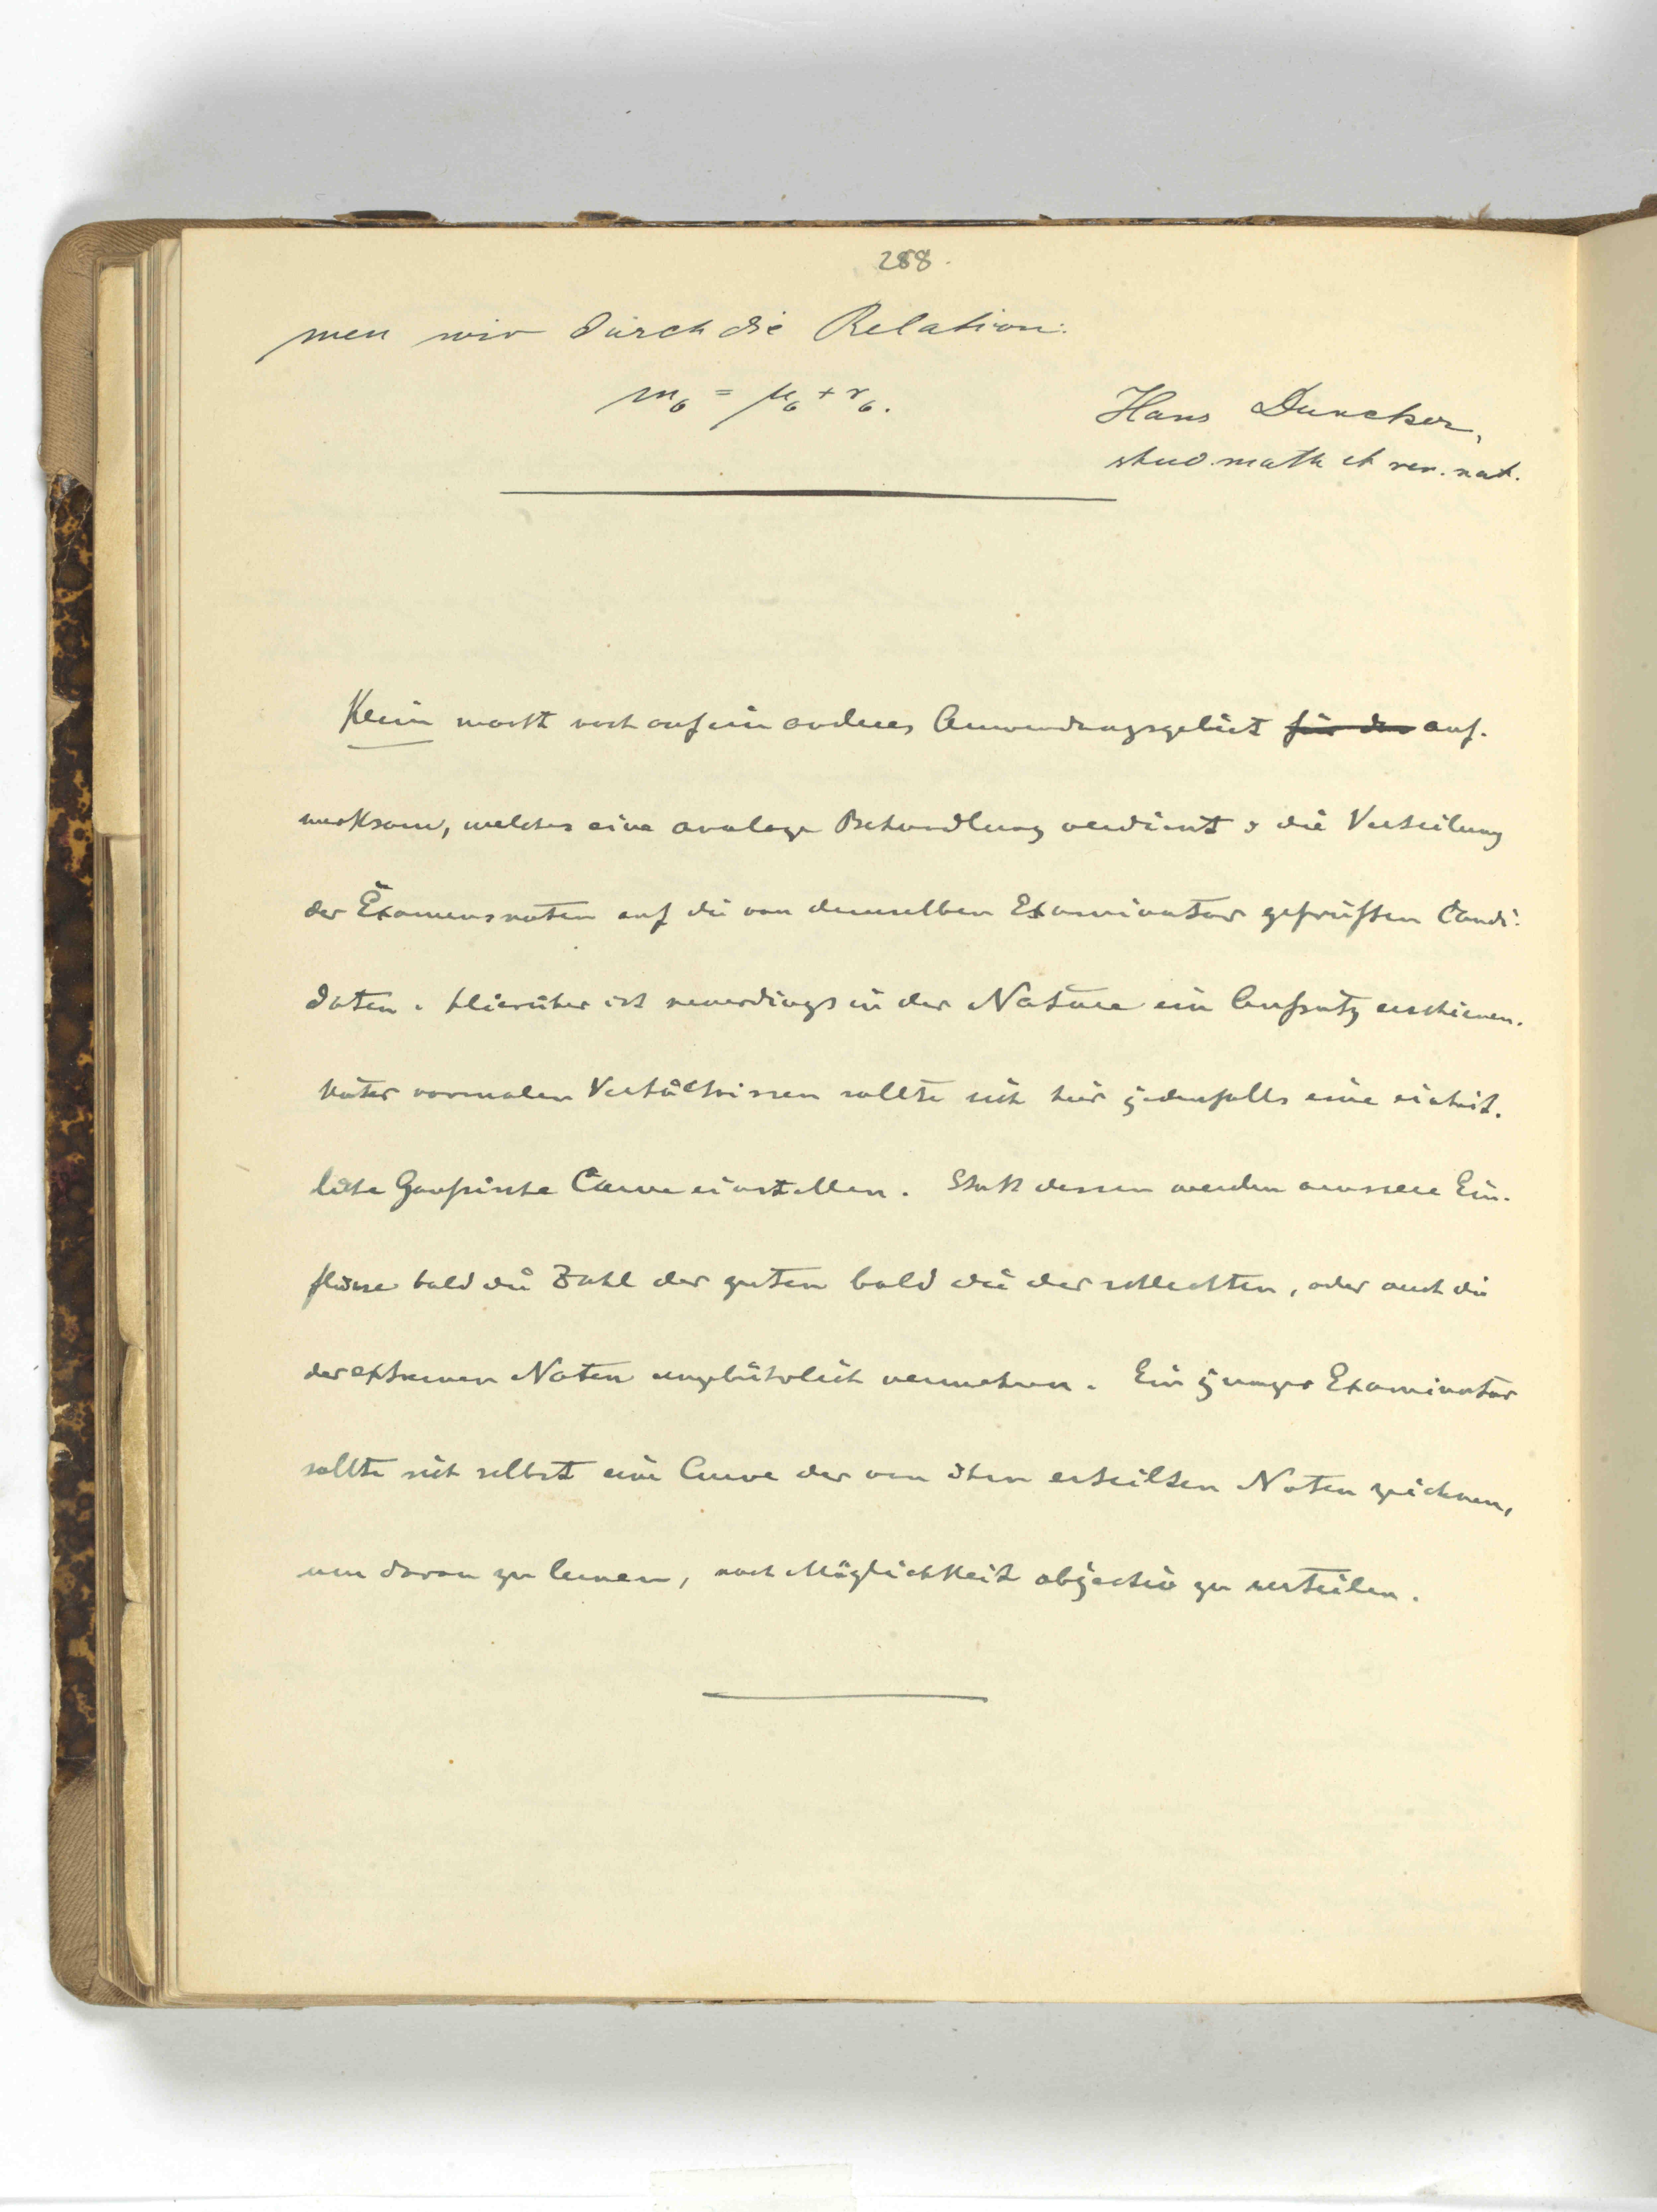 288.
men wir durch die Relation:
m₆ = μ₆ + r₆.
Hans Duncker,
stud. math et rer. nat.
Klein macht noch auf ein anderes Anwendungsgebiet für den auf-
merksam, welches eine analoge Behandlung verdient: die Verteilung
der Examensnoten auf die von demselben Examinator geprüften Candi-
daten. Hierüber ist neuerdings in der Nature ein Aufsatz erschienen.
Unter normalen Verhältnissen sollte sich hier jedenfalls eine einheit-
liche Gaußische Curve einstellen. Statt dessen werden aeussere Ein-
flüsse bald die Zahl der guten bald die der schlechten, oder auch die
der extremen Noten ungebührlich vermehren. Ein junger Examinator
sollte sich selbst eine Curve der von ihm erteilten Noten zeichnen,
um daran zu lernen, nach Möglichkeit objectiv zu urteilen.